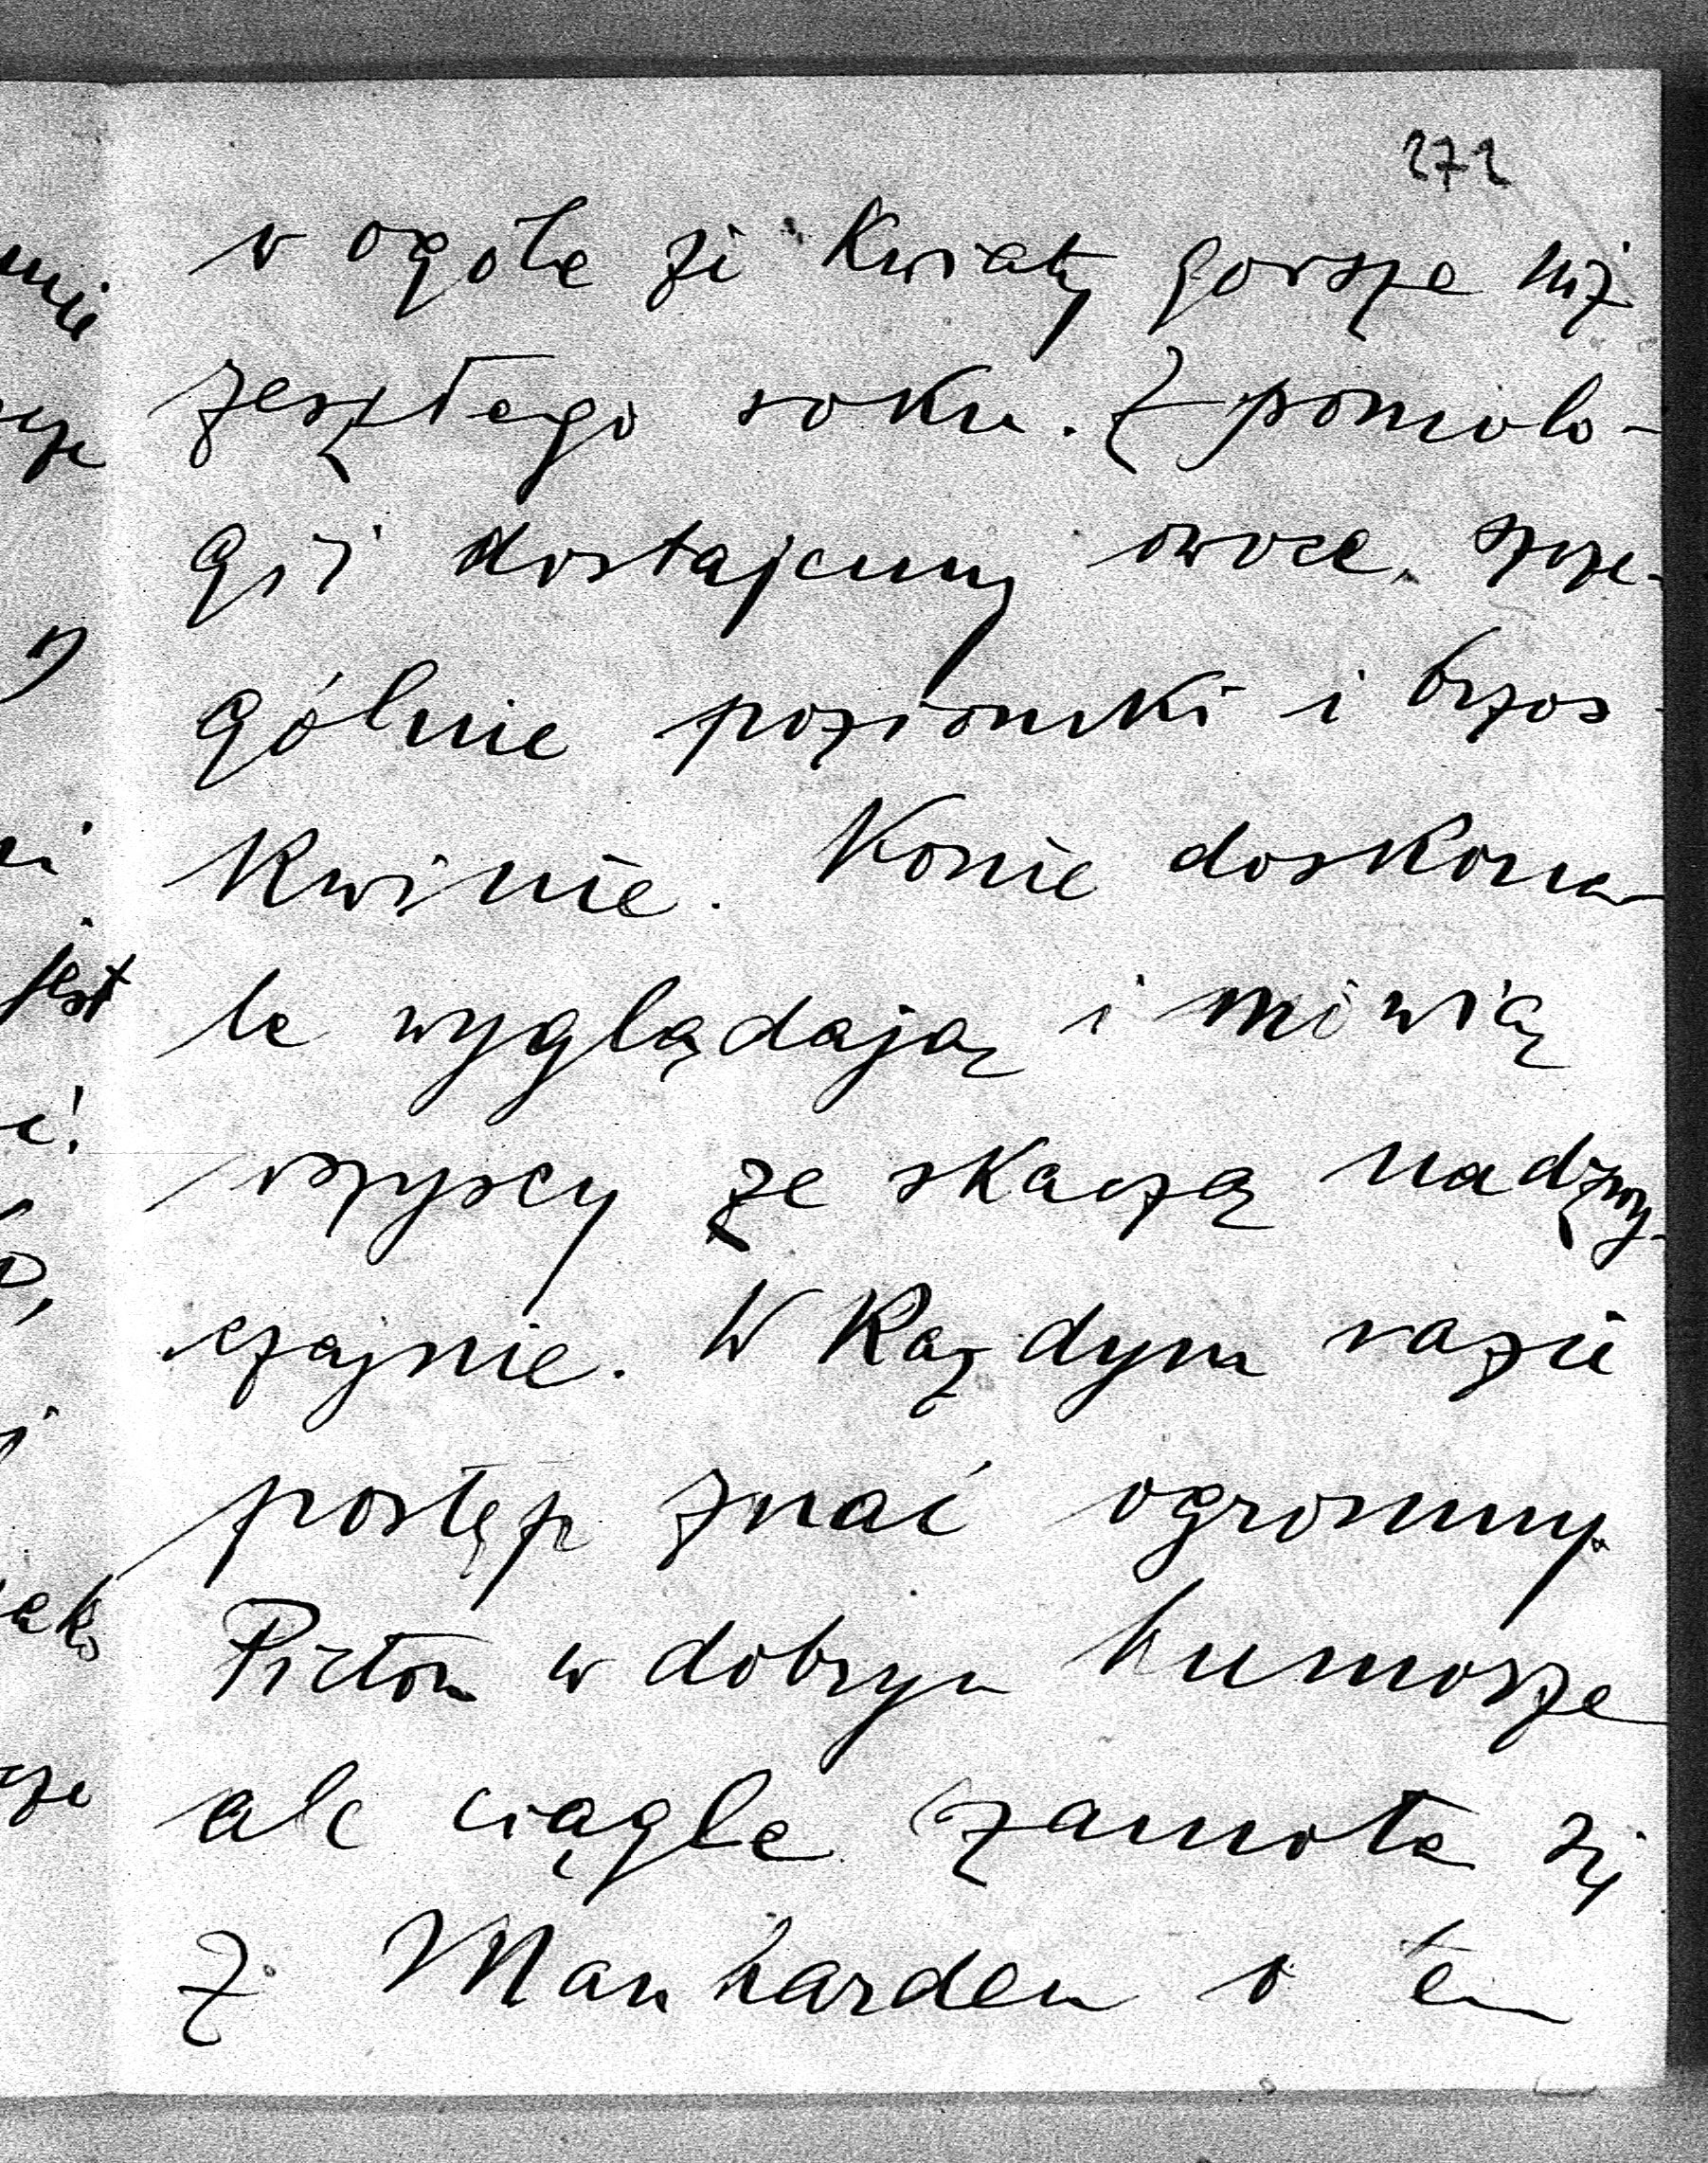 272
w ogóle że kwiaty gorsze niż
zeszłego roku. Z pomolo-
gii dostajemy owoce, szcze-
gólnie poziomki i brzos
kwinie. Konie doskona
le wyglądają i mówią
wszyscy że skaczą nadzwy-
czajnie. W każdym razie
postęp znać ogromny.
Picton w dobrym humorze
ale ciągle szamota się
z Manharden o ten